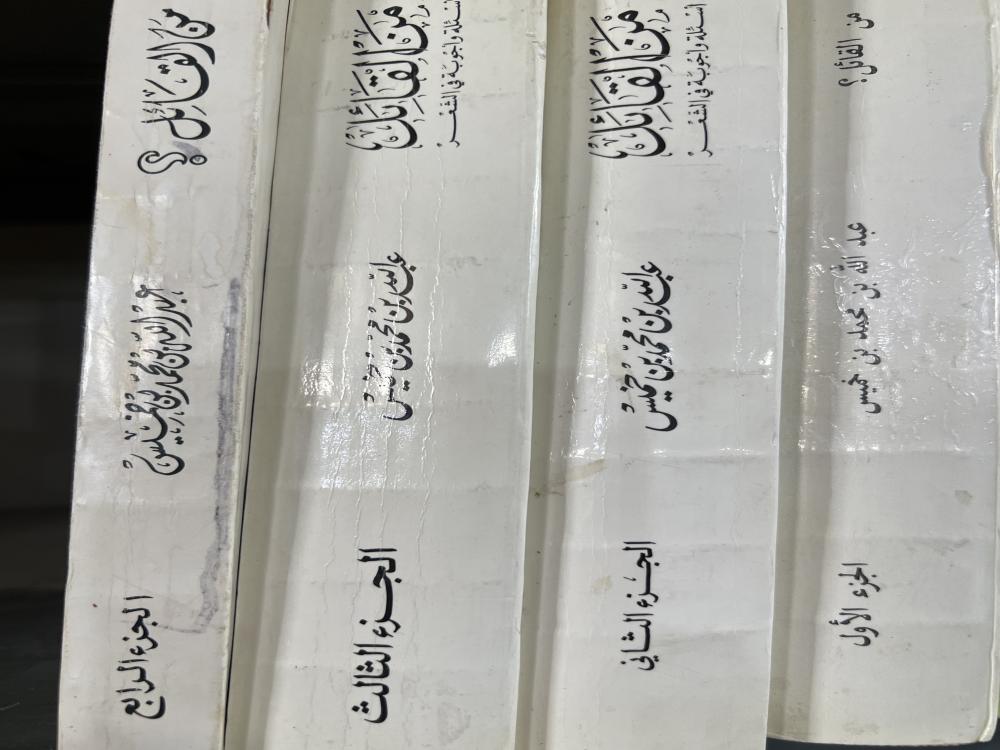 من القائل؟
عبد الله بن محمد بن خميس
الجزء الأول
من القائل
أسئلة وأجوبة في الشعر
عبد الله بن محمد بن خميس
الجزء الثاني
من القائل
أسئلة وأجوبة في الشعر
عبد الله بن محمد بن خميس
الجزء الثالث
من القائل؟
عبد الله بن محمد بن خميس
الجزء الرابع